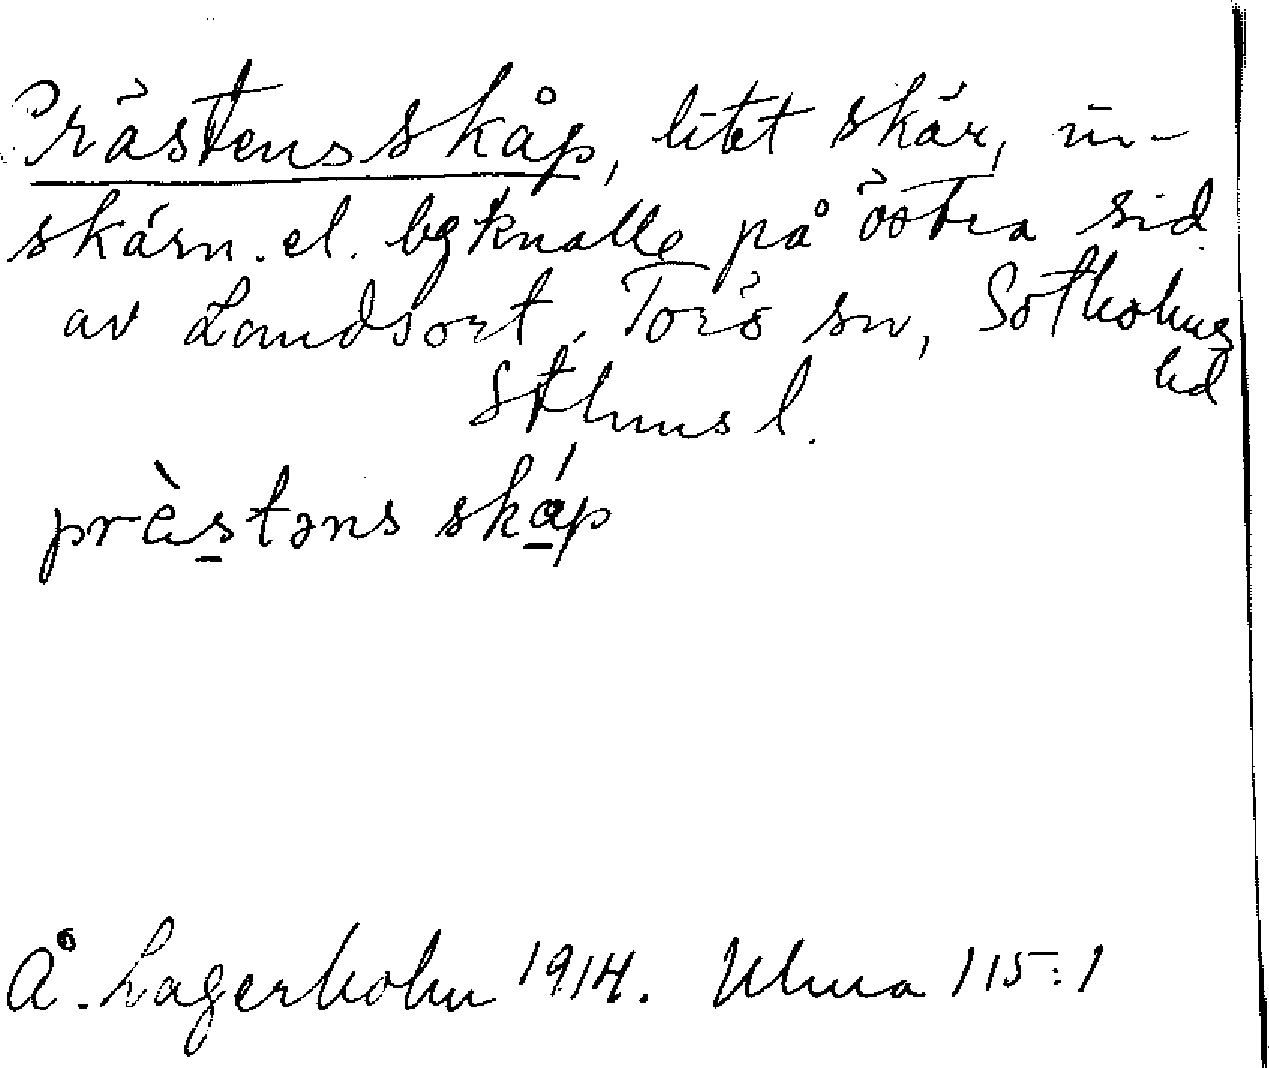 Prästens skåp, litet skär, in-
skärn. el. bgknalle på östra sid.
av Landsort, Torö sn, Sotholms
hd
Sthlms l.
prèstəns skáp
Å. Lagerholm 1914. Ulma 115:1